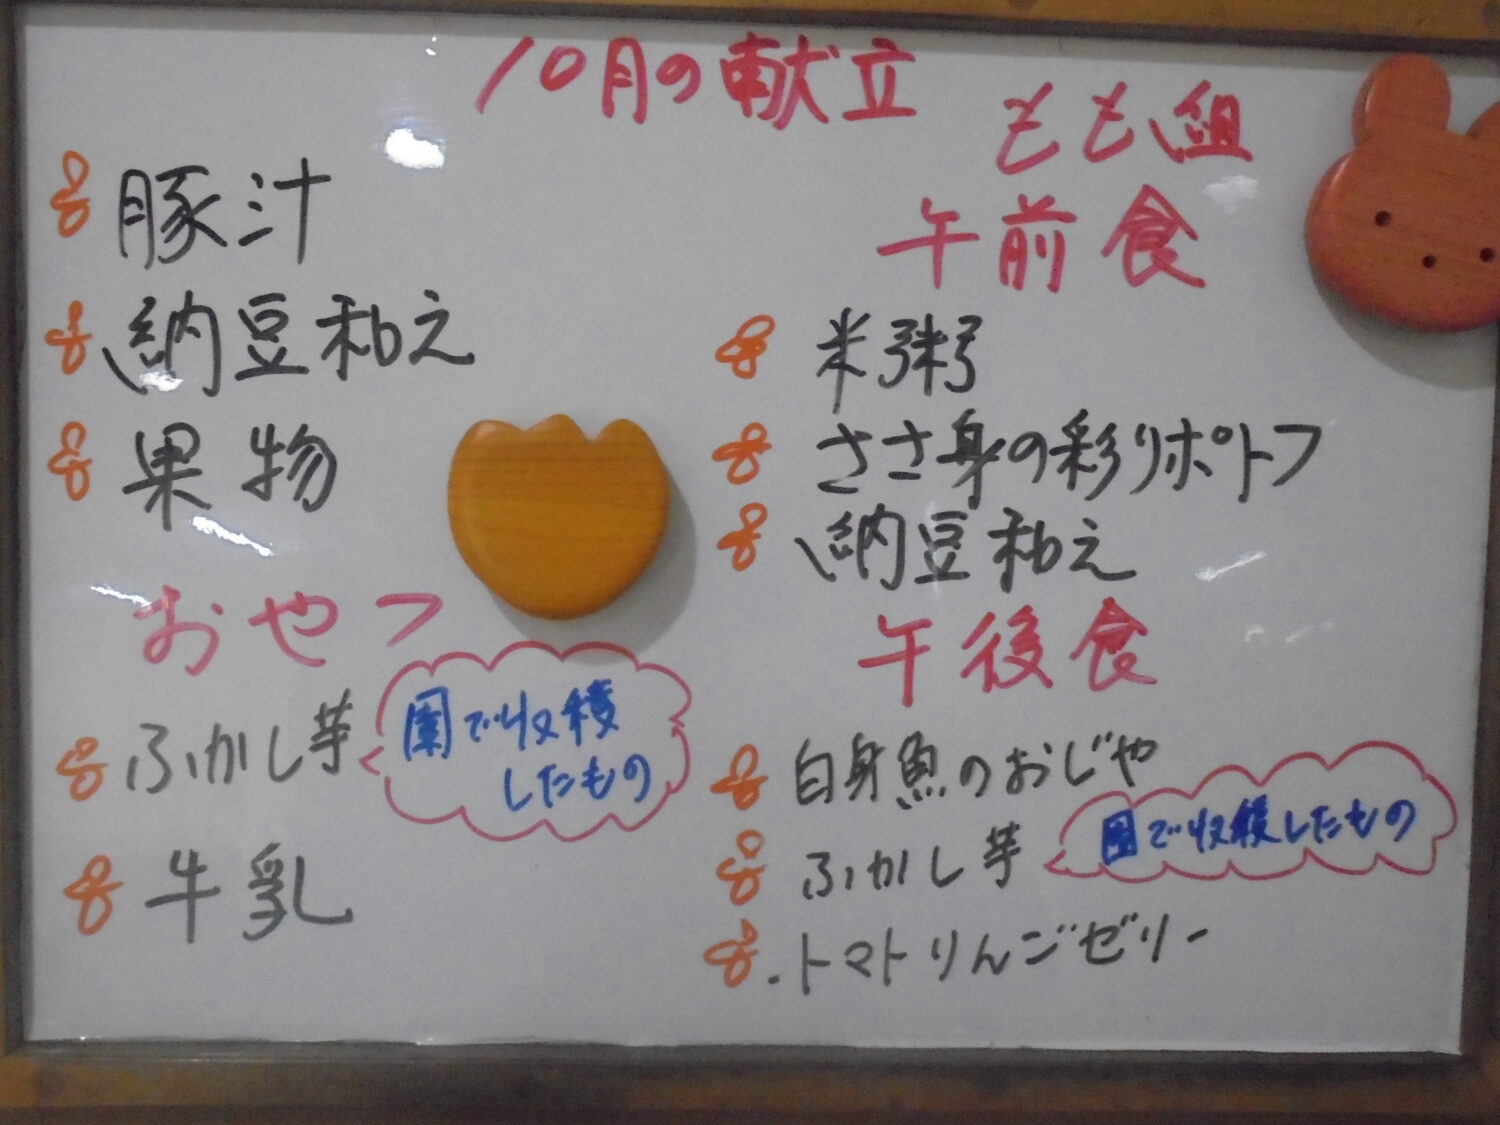 10月の献立
豚汁
納豆和え
果物
おやつ
ふかし芋
園で収穫
したもの
牛乳
もも組
午前食
米粥
ささ身の彩りポトフ
納豆和え
午後食
白身魚のおじや
ふかし芋
園で収穫したもの
トマトりんごゼリー